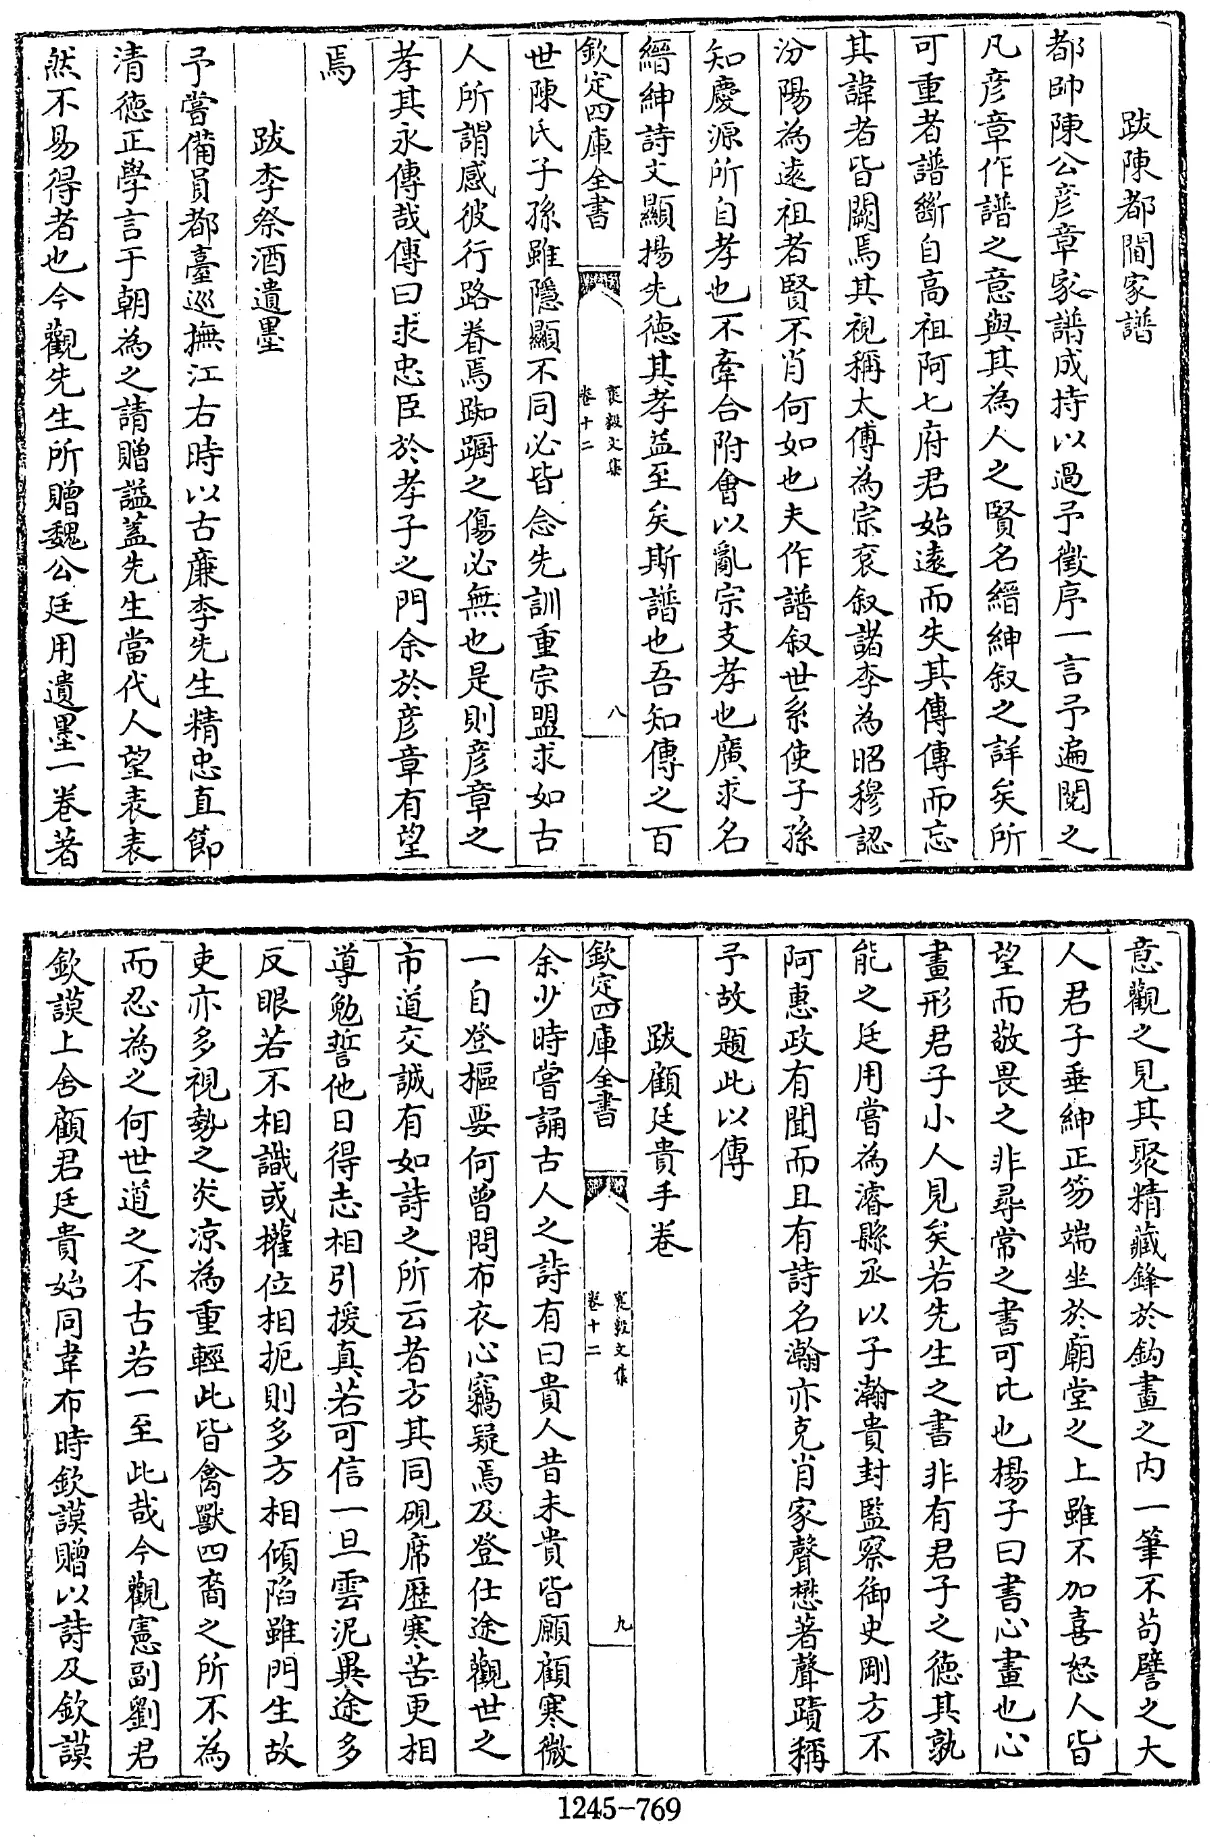 跋陳都閫家譜
都帥陳公彦章家譜成持以過予徵序一言予遍閲之
凡彦章作譜之意與其為人之賢名縉紳叙之詳矣所
可重者譜斷自高祖阿七府君始逺而失其傳傳而忘
其諱者皆闕焉其視稱太傅為宗衮叙諸李為昭穆認
汾陽為逺祖者賢不肖何如也夫作譜叙世系使子孫
知慶源所自孝也不牽合附會以亂宗支孝也廣求名
縉紳詩文顯揚先徳其孝益至矣斯譜也吾知傳之百
欽定四庫全書
襄毅文集
卷十二
八
世陳氏子孫雖隱顯不同必皆念先訓重宗盟求如古
人所謂感彼行路眷焉踟躕之傷必無也是則彦章之
孝其永傳哉傳曰求忠臣於孝子之門余於彦章有望
焉
跋李祭酒遺墨
予嘗備員都臺巡撫江右時以古廉李先生精忠直節
清徳正學言于朝為之請贈諡蓋先生當代人望表表
然不易得者也今觀先生所贈魏公廷用遺墨一卷著
意觀之見其聚精藏鋒於鈎畫之内一筆不茍譬之大
人君子垂紳正笏端坐於廟堂之上雖不加喜怒人皆
望而敬畏之非尋常之書可比也楊子曰書心畫也心
畫形君子小人見矣若先生之書非有君子之徳其孰
能之廷用嘗為濬縣丞以子瀚貴封監察御史剛方不
阿惠政有聞而且有詩名瀚亦克肖家聲懋著聲蹟稱
予故題此以傳
跋顧廷貴手卷
欽定四庫全書
襄毅文集
卷十二
九
余少時嘗誦古人之詩有曰貴人昔未貴皆願顧寒微
一自登樞要何曾問布衣心竊疑焉及登仕途觀世之
市道交誠有如詩之所云者方其同硯席歴寒苦更相
導勉誓他日得志相引援真若可信一旦雲泥異途多
反眼若不相識或權位相扼則多方相傾陷雖門生故
吏亦多視勢之炎凉為重輕此皆禽獸四裔之所不為
而忍為之何世道之不古若一至此哉今觀憲副劉君
欽謨上舍顧君廷貴始同韋布時欽謨贈以詩及欽謨
1245-769